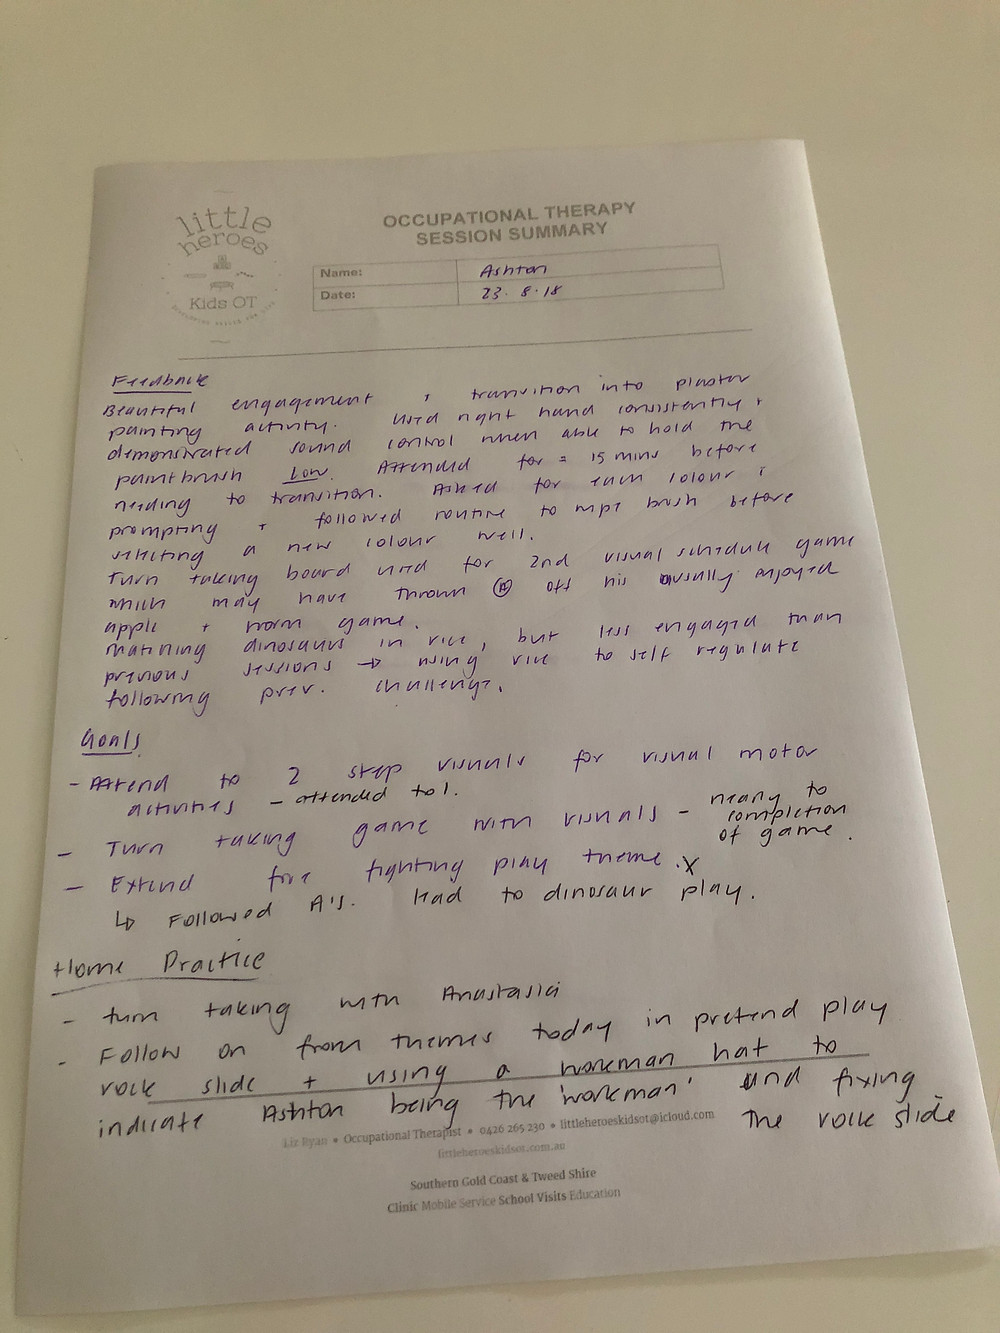 little
heroes
Kids OT
OCCUPATIONAL THERAPY
SESSION SUMMARY
Name: Ashton
Date: 23.8.18
Feedback
Beautiful engagement + transition into plaster
painting activity. Used right hand consistently +
demonstrated sound control when able to hold the
paintbrush low. Attended for ≈ 15 mins before
needing to transition. Asked for each colour
prompting + followed routine to wipe brush before
selecting a new colour well.
Turn taking board used for 2nd visual schedule game
which may have thrown Ⓐ off his usually enjoyed
apple + worm game.
Matching dinosaurs in rice, but less engaged than
previous sessions → using rice to self regulate
following prev. challenge.
Goals
- Attend to 2 step visuals for visual motor
activities - attended to 1.
- Turn taking game with visuals - nearly to
completion
of game.
- Extend fire fighting play theme. X
↳ Followed A's. Had to dinosaur play.
Home Practice
- turn taking with Anastasia
- Follow on from themes today in pretend play
rock slide + using a workman hat to
indicate Ashton being the 'workman' and fixing
the rock slide
Liz Ryan • Occupational Therapist • 0426 265 230 • littleheroeskidsot@icloud.com
littleheroeskidsot.com.au
Southern Gold Coast & Tweed Shire
Clinic Mobile Service School Visits Education